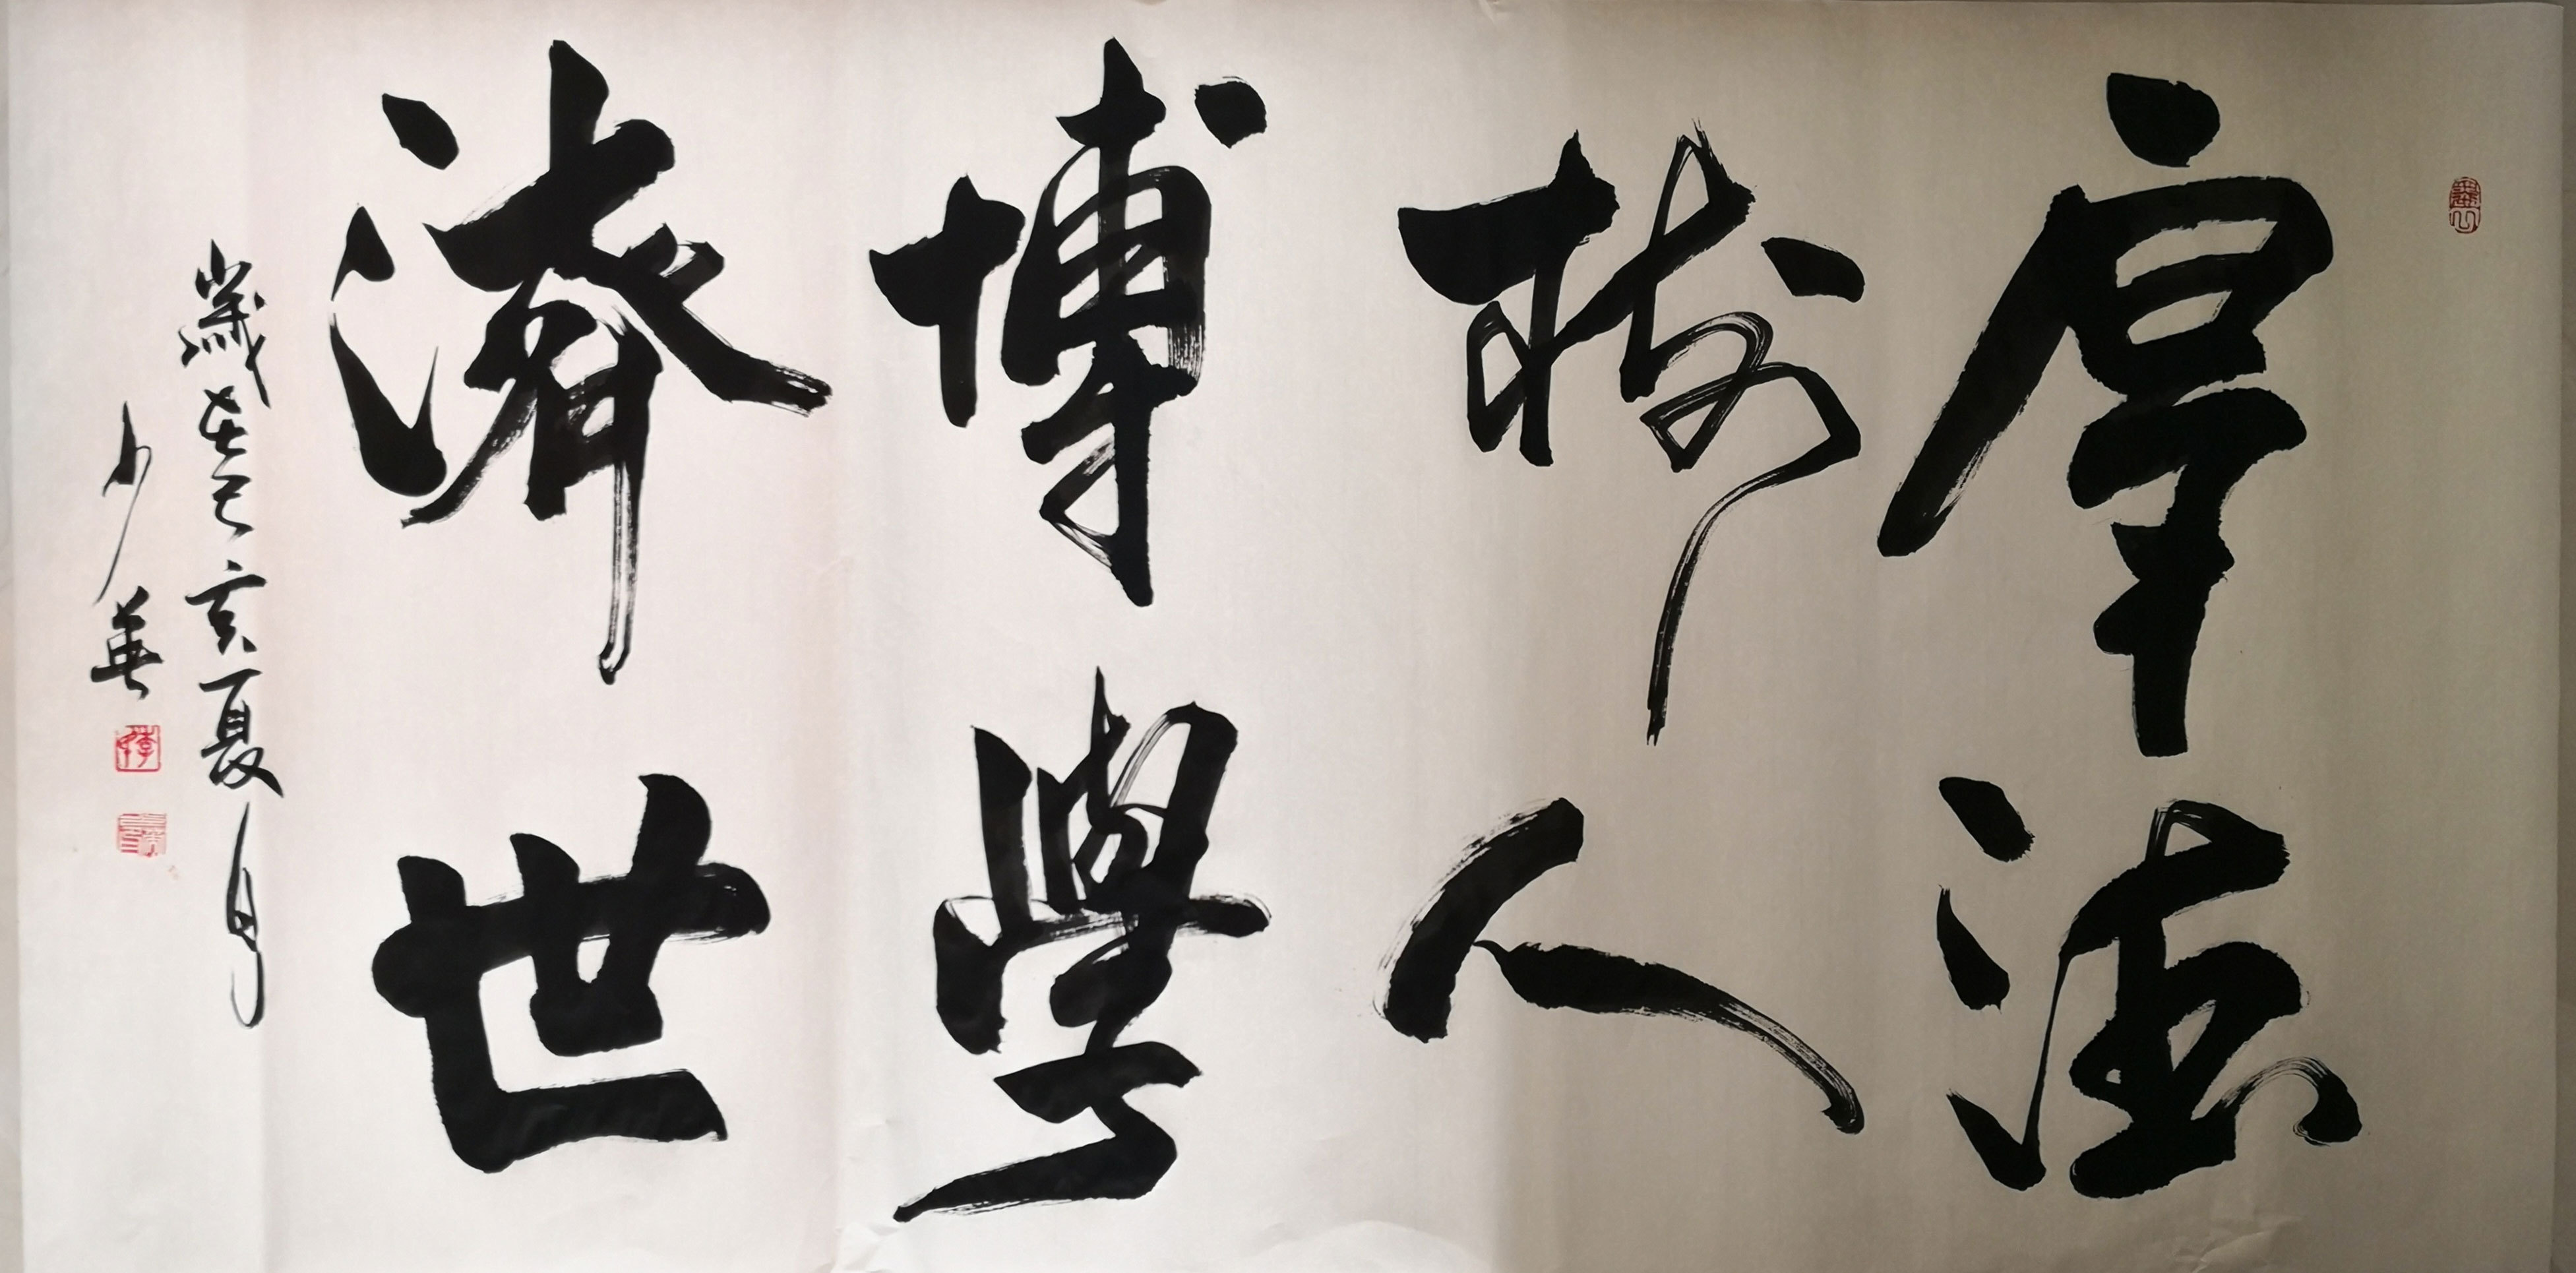 厚德
樹人
博學
濟世
歲在己亥夏月
少華